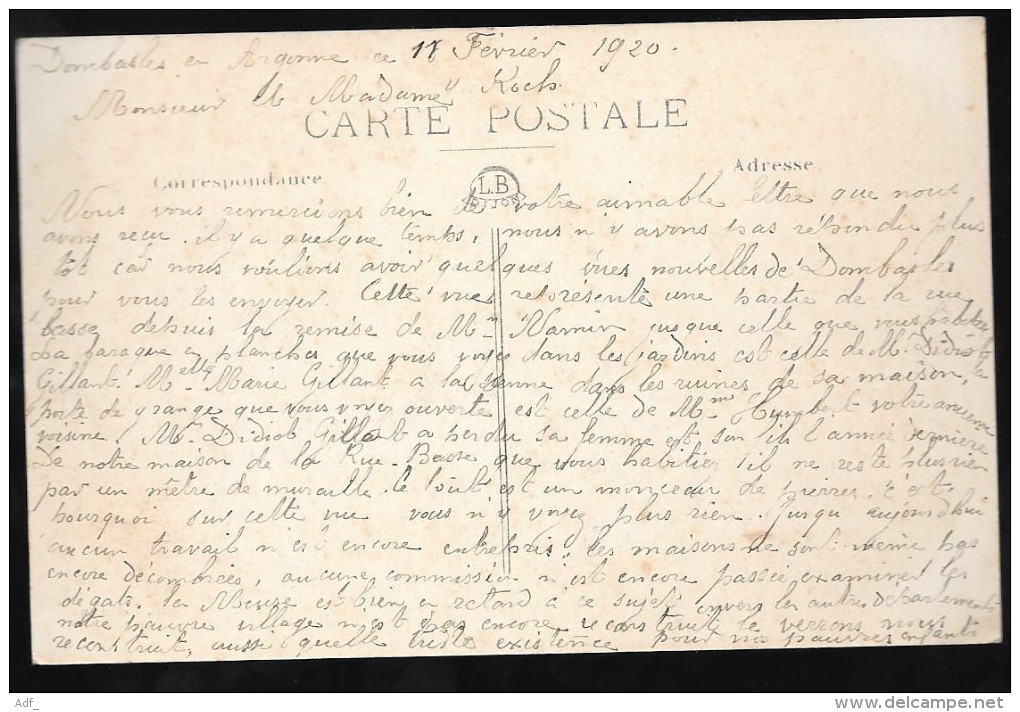 Dombasles en Argonne ce 17 Février 1920.
Monsieur et Madame Koch
CARTE POSTALE
Correspondance
Adresse
L.B
DIJON
Nous vous remercions bien de votre aimable lettre que nous
avons reçu il y a quelque temps, nous n'y avons pas répondu plus
tôt car nous voulions avoir quelques vues nouvelles de Dombasles
pour vous les envoyer. Cette vue représente une partie de la rue
basse depuis la remise de Mr Namin jusque celle que vous
La baraque en planches que vous voyez dans les jardins est celle de Mr Didiot
Gillant. Melle Marie Gillant a la sienne dans les ruines de sa maison, la
porte de grange que vous voyez ouverte est celle de Mme Humbert votre ancienne
voisine. Mr Didiot Gillant a perdu sa femme et son fils l'année dernière
De notre maison de la Rue-Basse que vous habitiez il ne reste plus rien
pas un mètre de muraille. le tout est un monceau de pierres. c'est
pourquoi sur cette vue vous n'y voyez plus rien. Jusqu'aujourd'hui
aucun travail n'est encore entrepris, les maisons ne sont même pas
encore décombrées, aucune commission n'est encore passée examiner les
dégats. la Meuse est bien en retard à ce sujet envers les autres départements
notre pauvre village n'est pas encore reconstruit le verrons nous
reconstruit, aussi quelle triste existence pour nos pauvres enfants
Adf_
www.delcampe.net